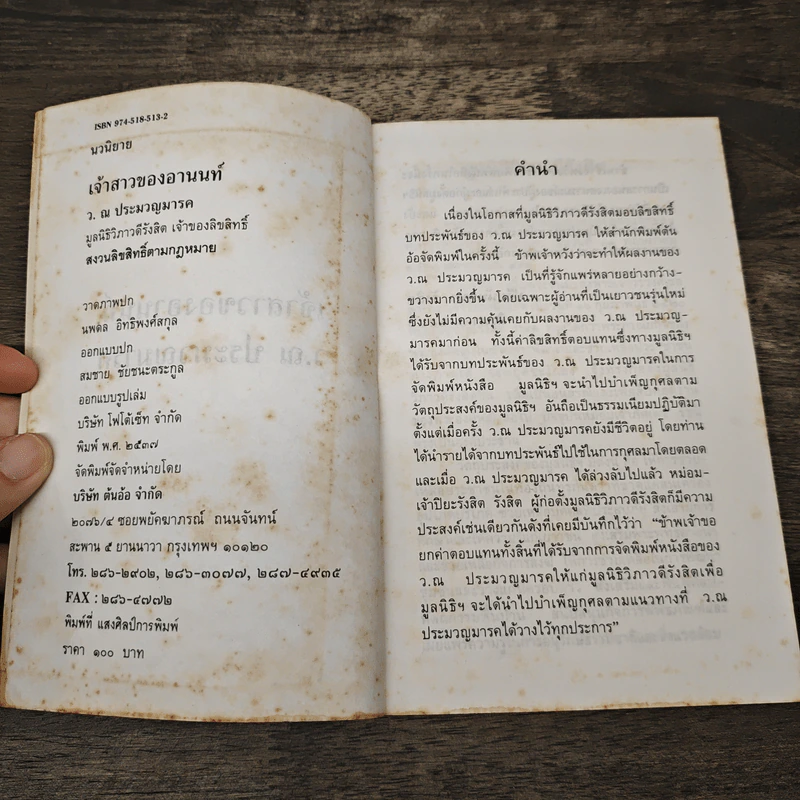 ISBN 974-518-513-2
นวนิยาย
เจ้าสาวของอานนท์
ว. ณ ประมวญมารค
มูลนิธิวิภาวดีรังสิต เจ้าของลิขสิทธิ์
สงวนลิขสิทธิ์ตามกฎหมาย
วาดภาพปก
นพดล อิทธิพงศ์สกุล
ออกแบบปก
สมชาย ชัยชนะตระกูล
ออกแบบรูปเล่ม
บริษัท โฟโต้เซ็ท จำกัด
พิมพ์ พ.ศ. ๒๕๓๗
จัดพิมพ์จัดจำหน่ายโดย
บริษัท ต้นอ้อ จำกัด
๒๐๗๖/๔ ซอยพยัคฆาภรณ์ ถนนจันทน์
สะพาน ๕ ยานนาวา กรุงเทพฯ ๑๐๑๒๐
โทร. ๒๘๖-๒๙๐๒, ๒๘๖-๓๐๗๗, ๒๘๗-๔๙๓๕
FAX : ๒๘๖-๔๗๗๒
พิมพ์ที่ แสงศิลป์การพิมพ์
ราคา ๑๐๐ บาท
คำนำ
เนื่องในโอกาสที่มูลนิธิวิภาวดีรังสิตมอบลิขสิทธิ์
บทประพันธ์ของ ว.ณ ประมวญมารค ให้สำนักพิมพ์ต้น
อ้อจัดพิมพ์ในครั้งนี้ ข้าพเจ้าหวังว่าจะทำให้ผลงานของ
ว.ณ ประมวญมารค เป็นที่รู้จักแพร่หลายอย่างกว้าง-
ขวางมากยิ่งขึ้น โดยเฉพาะผู้อ่านที่เป็นเยาวชนรุ่นใหม่
ซึ่งยังไม่มีความคุ้นเคยกับผลงานของ ว.ณ ประมวญ-
มารคมาก่อน ทั้งนี้ค่าลิขสิทธิ์ตอบแทนซึ่งทางมูลนิธิฯ
ได้รับจากบทประพันธ์ของ ว.ณ ประมวญมารคในการ
จัดพิมพ์หนังสือ มูลนิธิฯ จะนำไปบำเพ็ญกุศลตาม
วัตถุประสงค์ของมูลนิธิฯ อันถือเป็นธรรมเนียมปฏิบัติมา
ตั้งแต่เมื่อครั้ง ว.ณ ประมวญมารคยังมีชีวิตอยู่ โดยท่าน
ได้นำรายได้จากบทประพันธ์ไปใช้ในการกุศลมาโดยตลอด
และเมื่อ ว.ณ ประมวญมารค ได้ล่วงลับไปแล้ว หม่อม-
เจ้าปิยะรังสิต รังสิต ผู้ก่อตั้งมูลนิธิวิภาวดีรังสิตก็มีความ
ประสงค์เช่นเดียวกันดังที่เคยมีบันทึกไว้ว่า “ข้าพเจ้าขอ
ยกค่าตอบแทนทั้งสิ้นที่ได้รับจากการจัดพิมพ์หนังสือของ
ว.ณ ประมวญมารคให้แก่มูลนิธิวิภาวดีรังสิตเพื่อ
มูลนิธิฯ จะได้นำไปบำเพ็ญกุศลตามแนวทางที่ ว.ณ
ประมวญมารคได้วางไว้ทุกประการ”